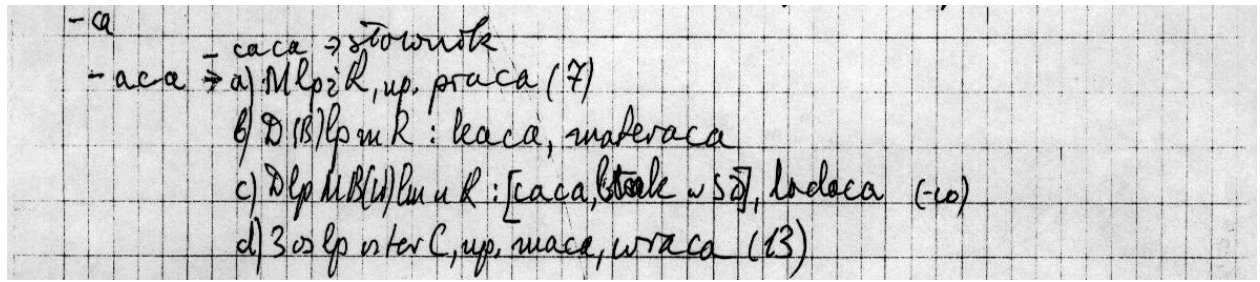 -ca
- caca → słownik
- aca → a) M lp ż R, np. praca (7)
b) D(B) lp m R : kaca, materaca
c) D lp M B(W) lm n R : [caca, brak w SJ], lodaca (-co)
d) 3 os lp ter C, np. maca, wraca (13)